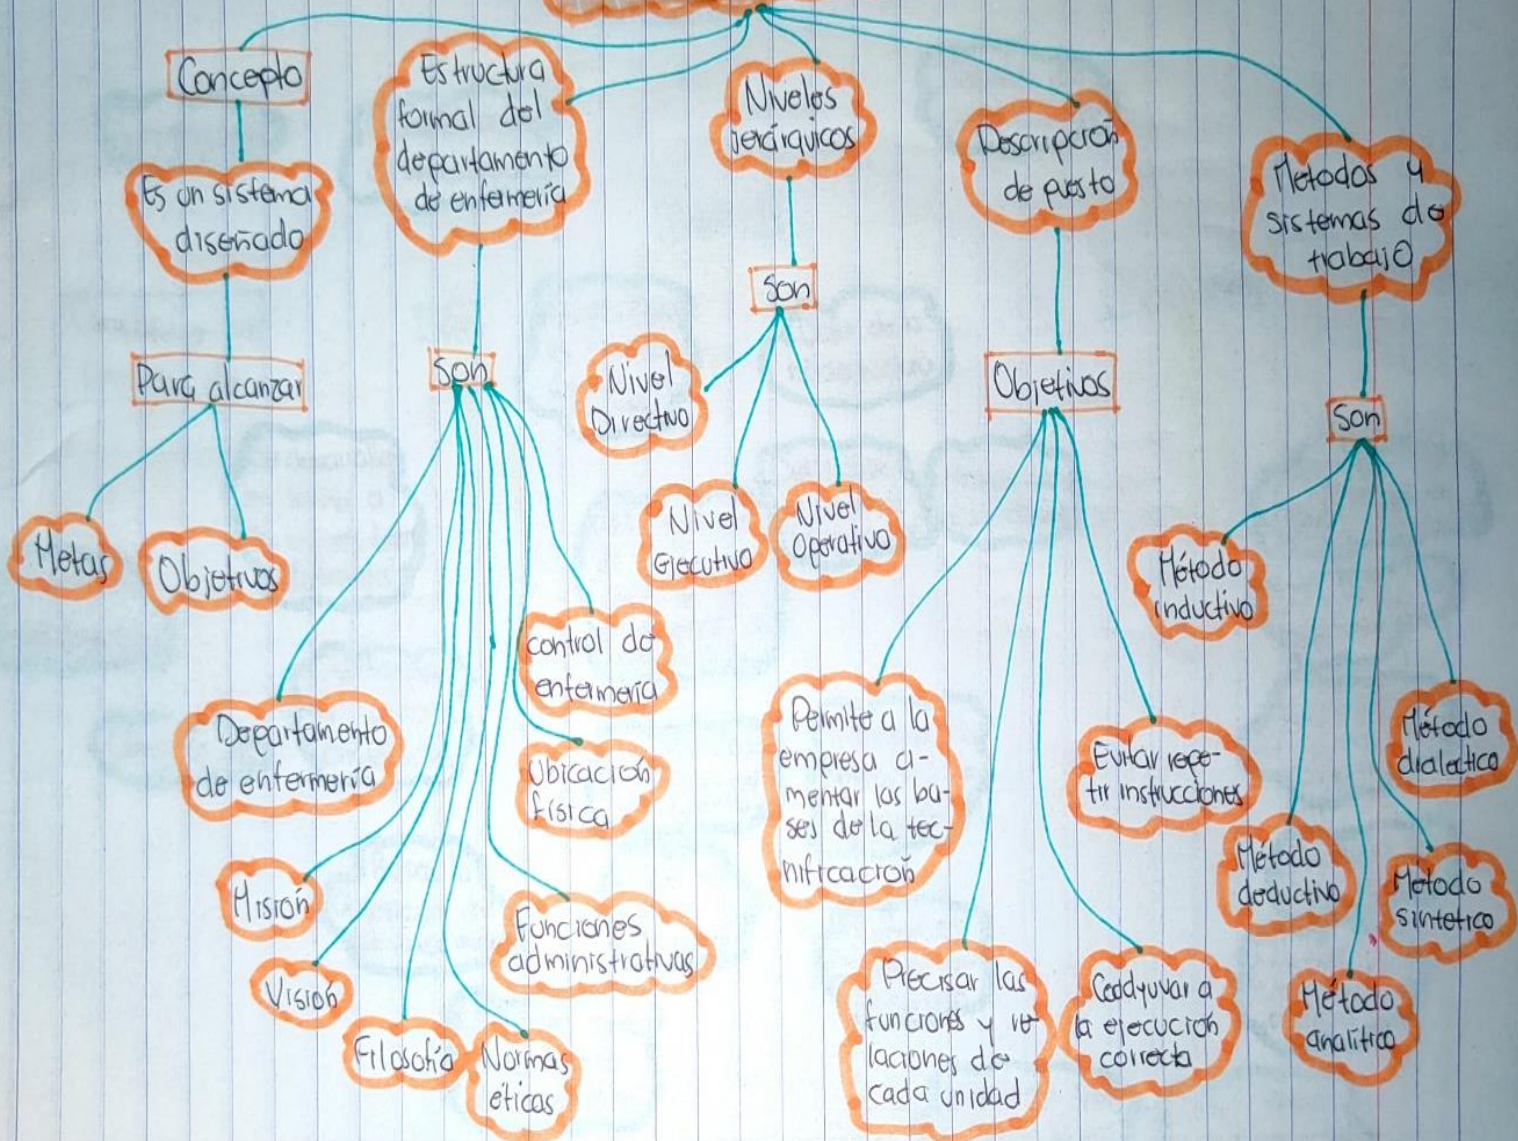 Concepto
Es un sistema
diseñado
Para alcanzar
Metas
Objetivos
Estructura
formal del
departamento
de enfermería
Son
Departamento
de enfermería
Misión
Visión
Filosofía
Normas
éticas
Funciones
administrativas
Ubicación
física
control de
enfermería
Niveles
jerárquicos
Son
Nivel
Directivo
Nivel
Ejecutivo
Nivel
Operativo
Descripción
de puesto
Objetivos
Permite a la
empresa ci-
mentar las ba-
ses de la tec-
nificación
Precisar las
funciones y re-
laciones de
cada unidad
Coadyuvar a
la ejecución
correcta
Evitar repe-
tir instrucciones
Metodos y
sistemas de
trabajo
Son
Método
inductivo
Método
deductivo
Método
analítico
Método
sintetico
Método
dialectico